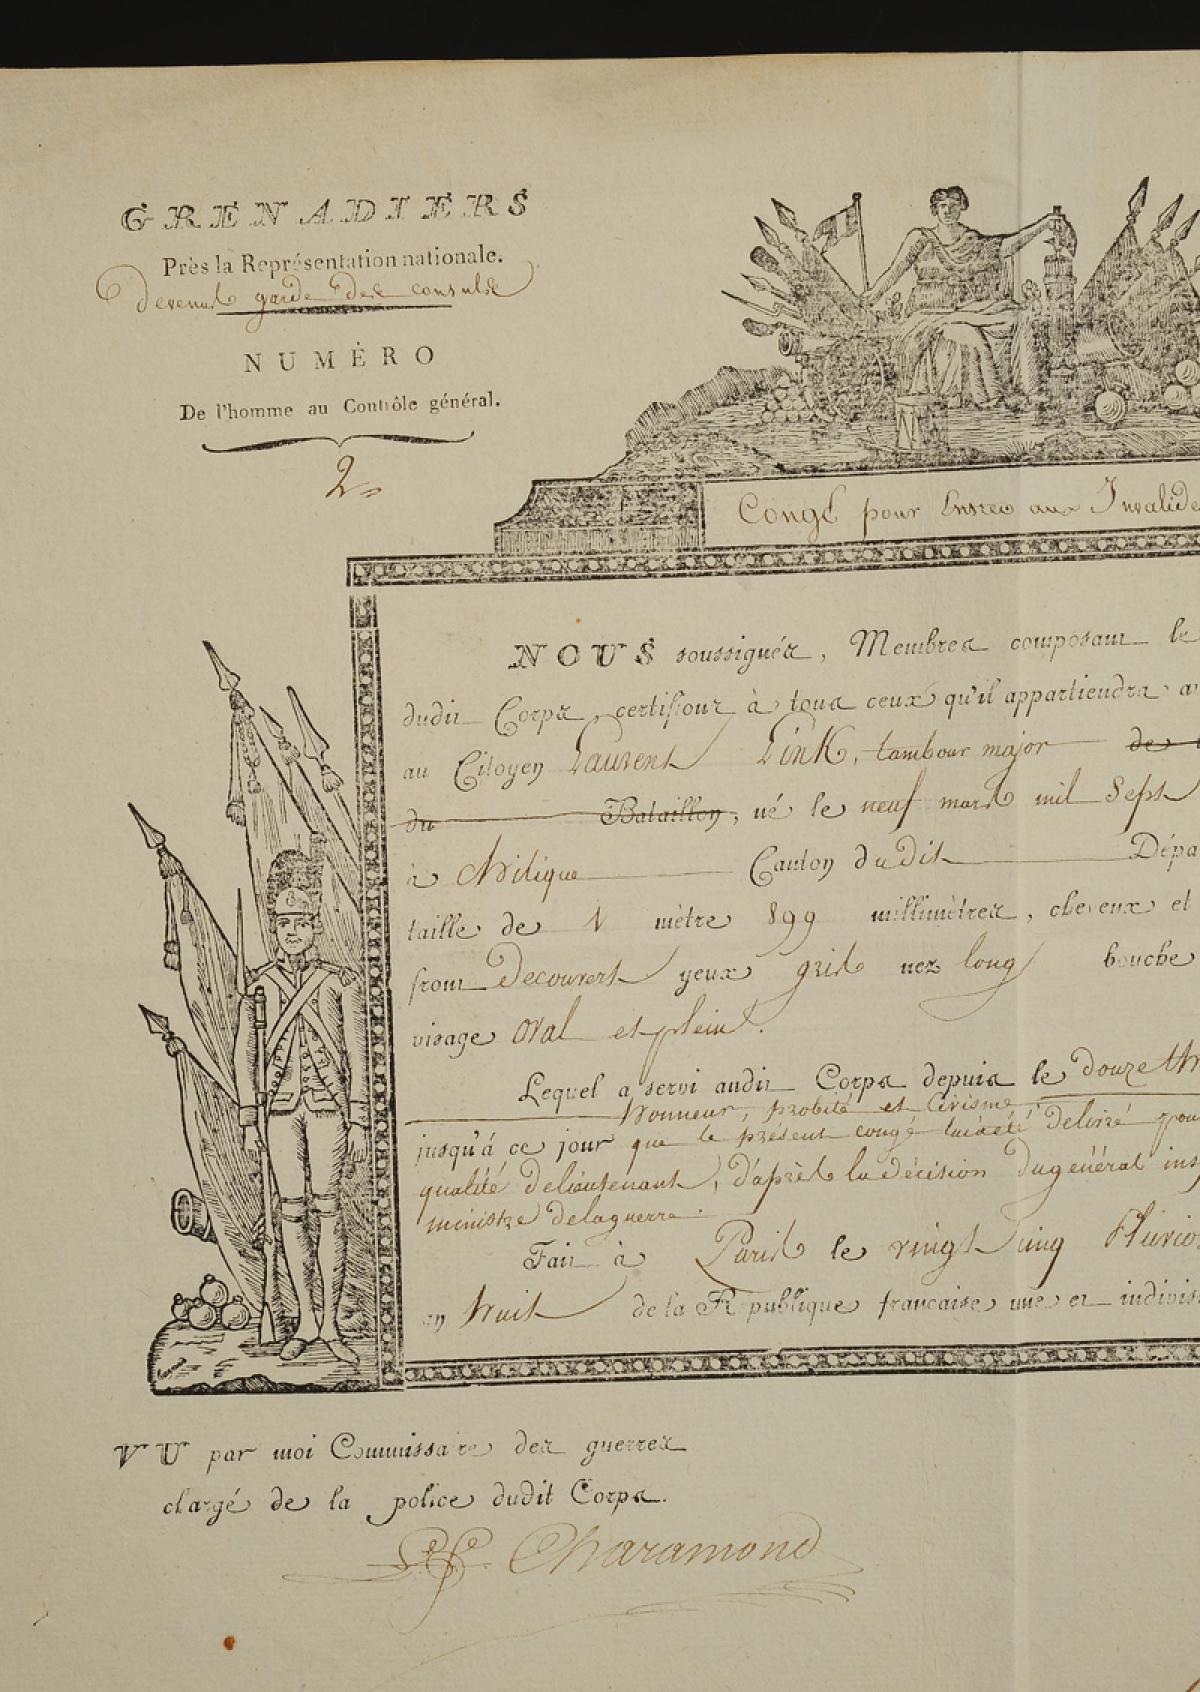 GRENADIERS
Près la Représentation nationale.
devenus garde des consuls
NUMÉRO
De l'homme au Contrôle général.
2
Congé pour Entrer aux Invalide
NOUS soussignés, Membres composant le
dudit Corps, certifions à tous ceux qu'il appartiendra a
au Citoyen Laurent Link, tambour major de
du Bataillon, né le neuf mars mil Sept
à Canton dudit Dépa
taille de 1 mètre 899 millimètres, cheveux et
front Decouvert yeux gris nez long bouche
visage oval et plein.
Lequel a servi audit Corps depuis le douze
honneur, probité et civisme,
jusqu'à ce jour que le présent congé lui a été délivré pou
qualité de lieutenant, d'après la décision du général ins
ministre de la guerre.
Fait à Paris le vingt cinq Pluvio
an huit de la République française une et indivis
VU par moi Commissaire des guerres
chargé de la police dudit Corps.
Charamond